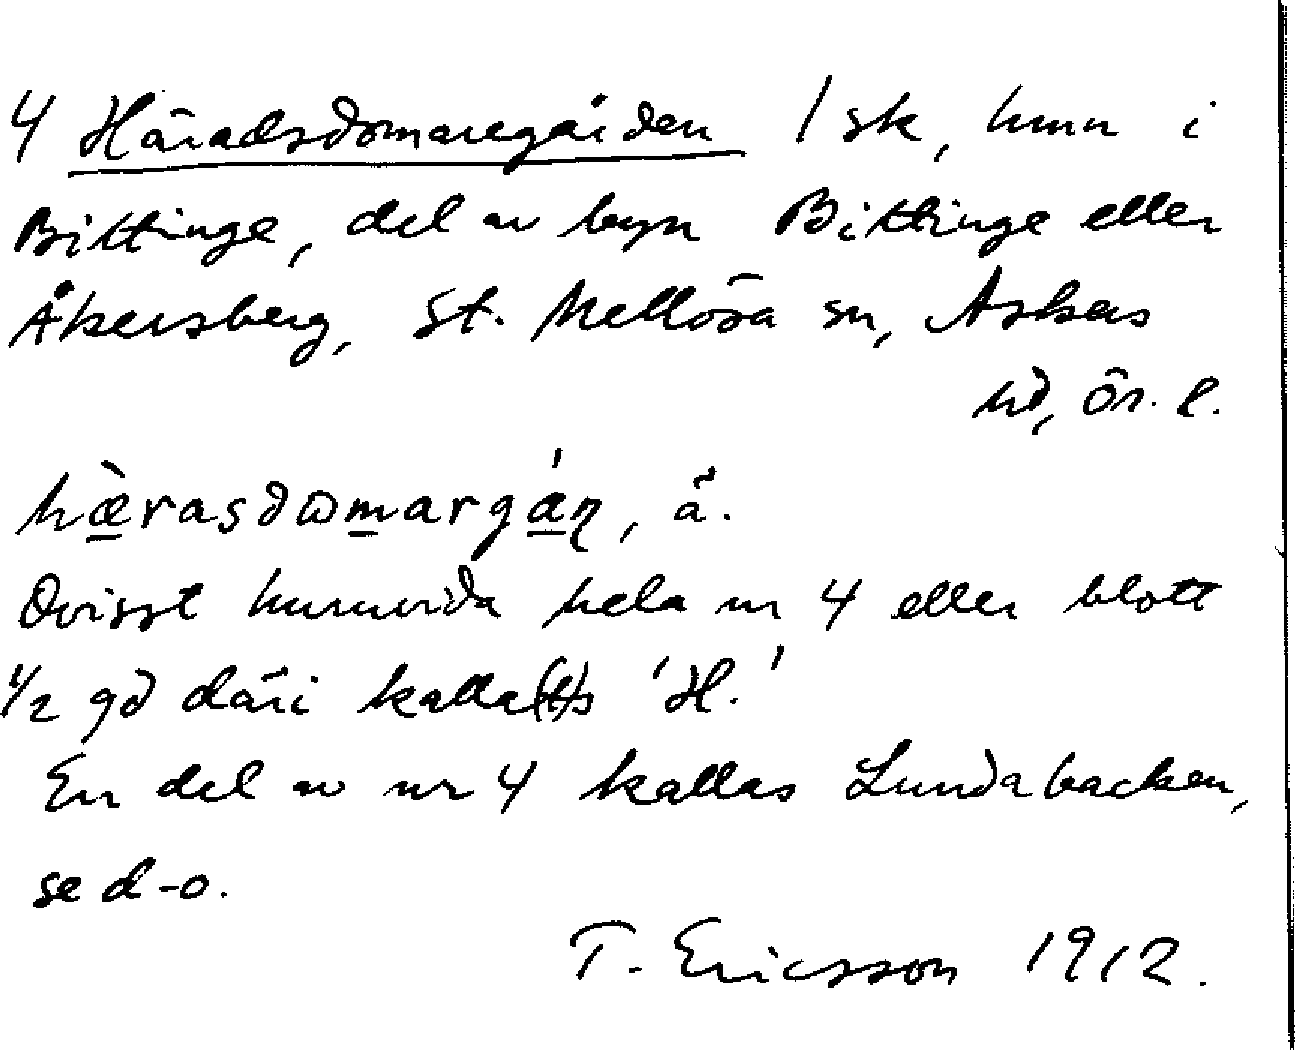 4 Häradsdomaregården 1 sk, hmn i
Bittinge, del av byn Bittinge eller
Åkersberg, St. Mellösa sn, Askers
hd, Ör. l.
hæ̀rasdωmargán, å.
Ovisst huruvida hela nr 4 eller blott
1/2 gd däri kalla(t)s 'H.'
En del av nr 4 kallas Lundabacken,
se d-o.
T. Ericsson 1912.